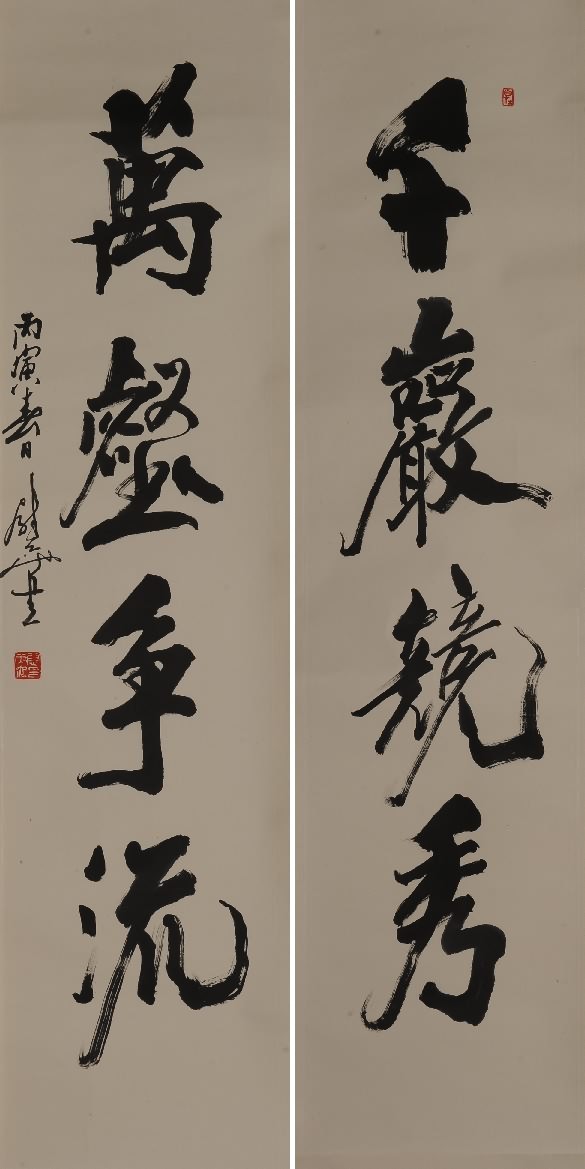 千巖競秀
萬壑争流
丙寅春日